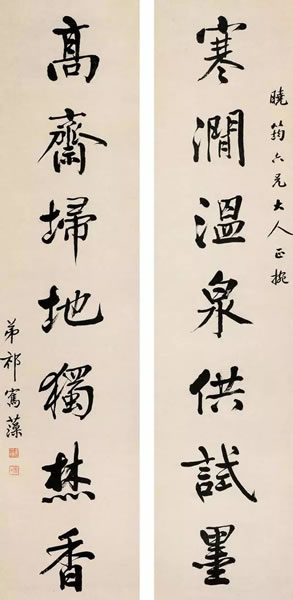 曉筠六兄大人正腕
寒澗溫泉供試墨
高齋埽地獨焚香
弟祁寯藻